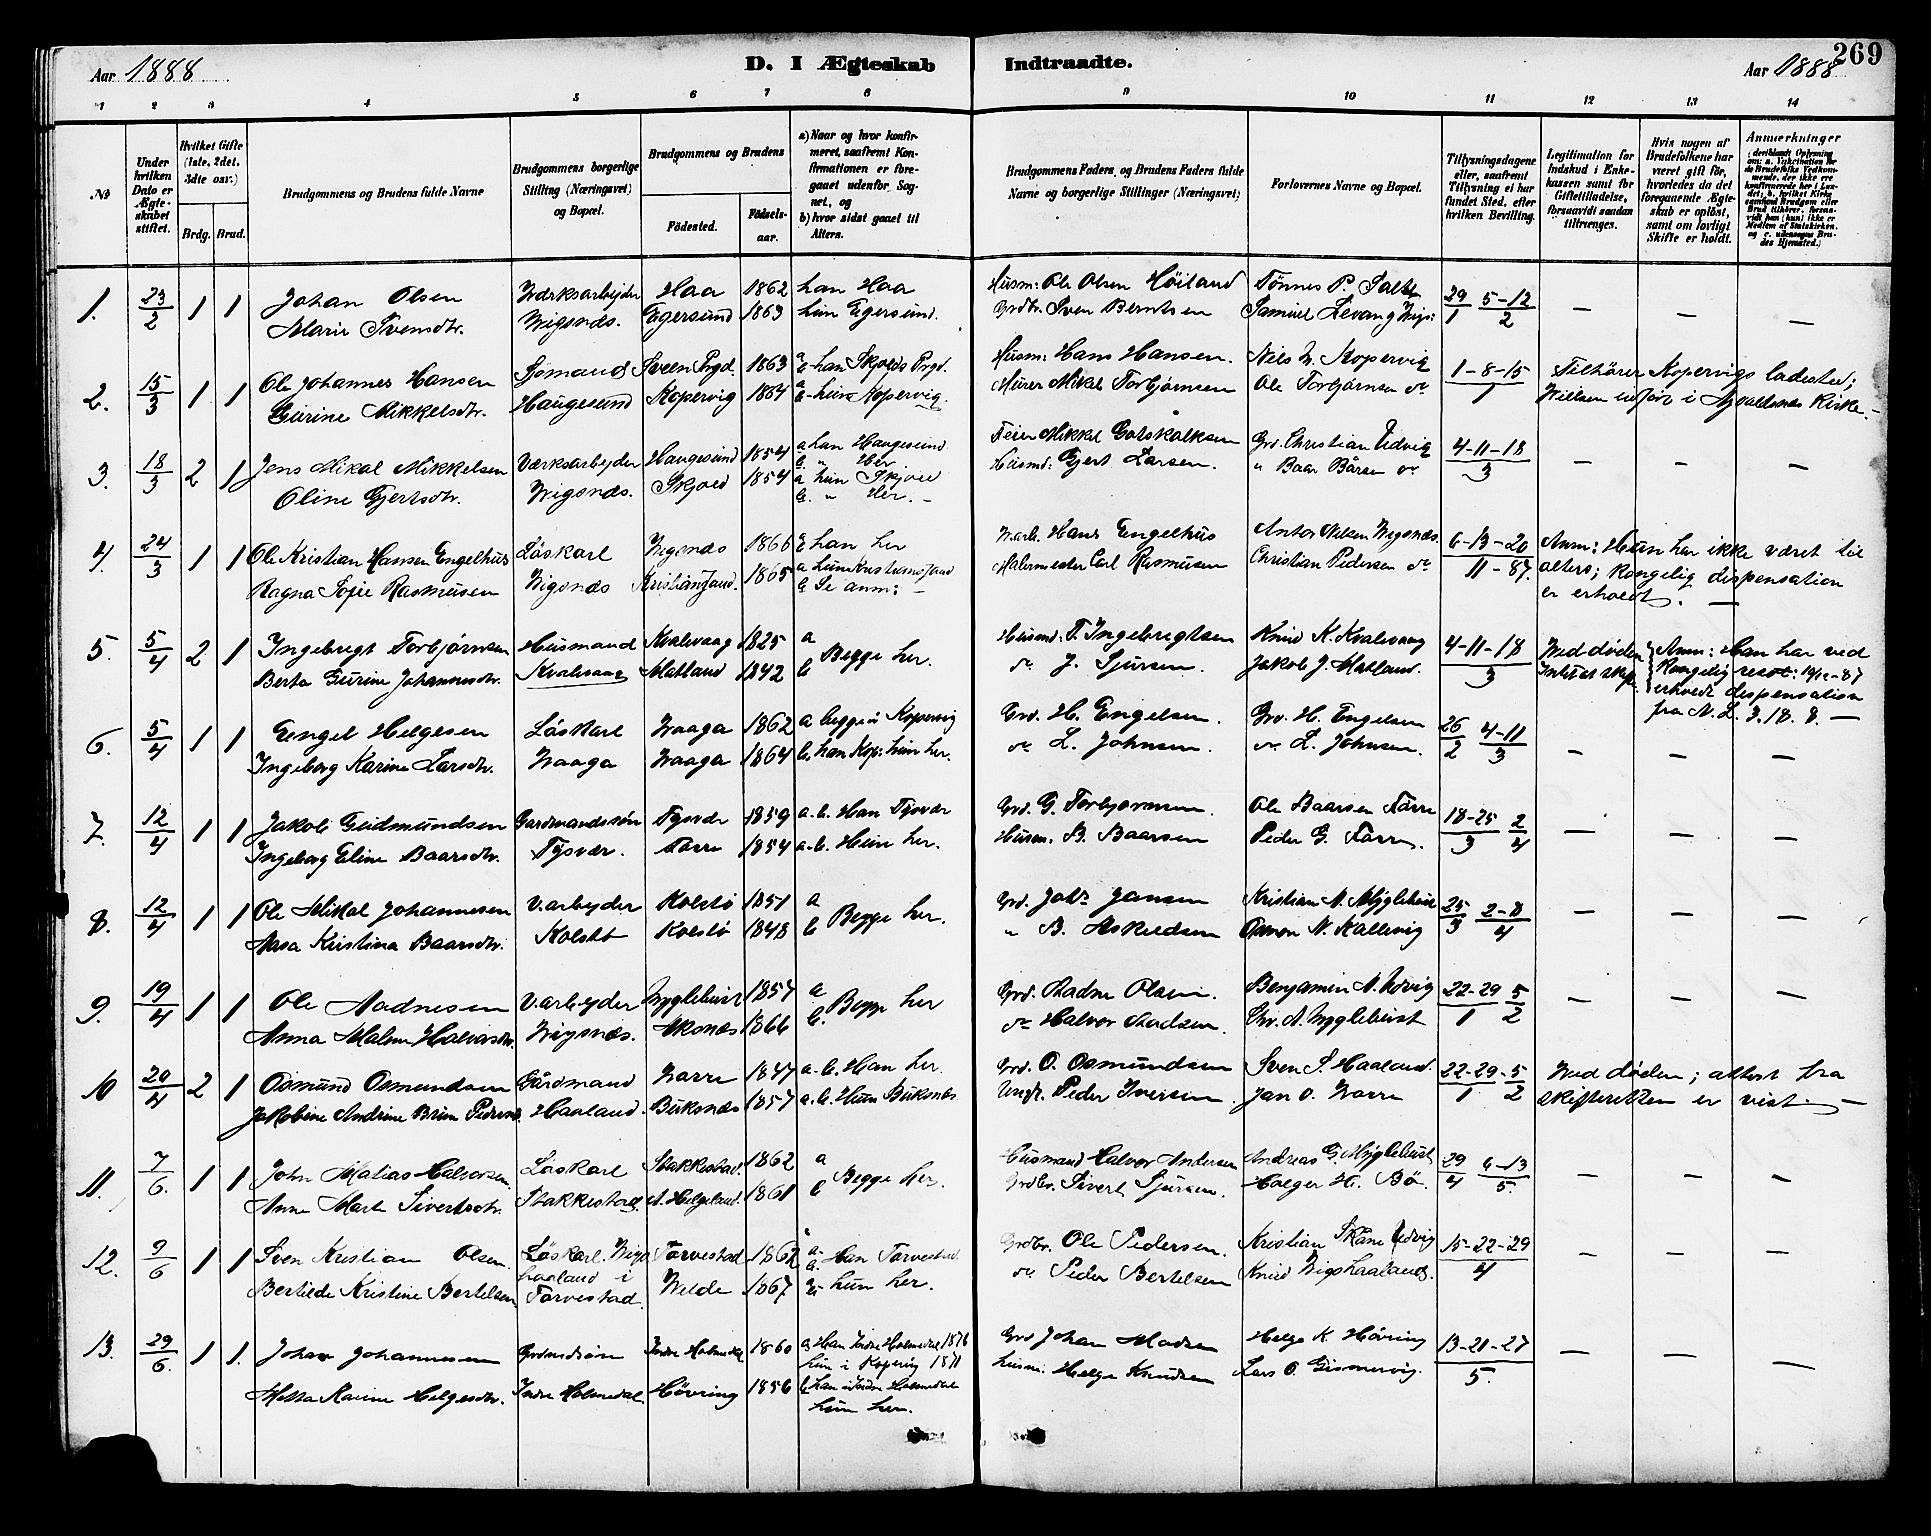 Aar 1888
D. I Ægteskab Indtraadte.
Aar 1888
269
1 2 3 4 5 6 7 8 9 10 11 12 13 14
No
Under hvilken Dato er Ægteskabet stiftet.
Hvilket Gifte (1ste, 2det, 3die osv.)
Brdg. Brud.
Brudgommens og Brudens fulde Navne
Brudgommens borgerlige Stilling (Næringsvei) og Bopæl.
Brudgommens og Brudens
Fødested.
Fødselsaar.
a) Naar og hvor konfirmeret, saafremt Konfirmationen er foregaaet udenfor Sognet, og
b) hvor sidst gaaet til Alters.
Brudgommens Faders, og Brudens Faders fulde Navne og borgerlige Stillinger (Næringsvei)
Forlovernes Navne og Bopæl.
Tillysningsdagene eller, saafremt Tillysning ei har fundet Sted, efter hvilken Bevilling.
Legitimation for Indskud i Enkekassen samt for Giftetilladelse, forsaavidt saadan tiltrænges.
Hvis nogen af Brudefolkene har været gift før, hvorledes da det foregaaende Ægteskab er opløst, samt om lovligt Skifte er holdt.
Anmærkninger
1. 23/2 1 1 Johan Olsen Værksarbejder Haa 1862 han Haa Husm: Ole Olsen Høiland Tønnes P. 29/1 5-12/2 — — —
Marie Svensdtr. Vigsnæs. Egersund 1863 hun Egersund. Grdbr. Sven Berntsen Samuel Levang Vigs:
2. 15/3 1 1 Ole Johannes Hansen Sjømand Sveen Prgd. 1863 a b han Skjolds Prgd. Husm: Hans Hansen. Nils N. Kopervig 1-8-15/1 Tilhører Kopervigs ladested;
Gurine Mikkelsdtr. Haugesund Kopervig 1864 a b hun Kopervig. Murer Mikal Torbjørnsen Ole Torbjørnsen do Vielsen udført i Avaldsnæs Kirke. —
3. 18/3 2 1 Jens Mikal Mikkelsen Værksarbejder Haugesund 1854 a han Haugesund b " Her Feier Mikkel Gotskalksen Grd. Christian Udvig 4-11-18/3 — — —
Oline Gjertsdtr. Vigsnæs. Skjold 1854 a hun Skjold b " Her. — Husmd: Gjert Larsen. " Baar Bårsen do
4. 24/3 1 1 Ole Kristian Hansen Engelhus Løskarl Vigsnæs 1866 b han her V.arb. Hans Engelhus Anton Nilsen Vigsnæs. 6-13-20/11-87. Anm: Hun har ikke været til
Ragna Sofie Rasmusen Vigsnæs Kristianssand. 1865 a hun Kristianssand b Se anm: — Malermester Carl Rasmusen Christian Pedersen do alters; kongelig dispensation
er erholdt. —
5. 5/4 2 1 Ingebregt Torbjørnsen Husmand Kvalevaag 1825 a Husmd: T. Ingebrigtsen Knud K. Kvalevaag 4-11-18/3 Ved døden Anm: Han har ved
Berta Gurine Johannesdtr. Kvalevaag Matland 1842 b Begge her. do J. Sjursen. Jakob J. Matland. Intet at skifte. Kongelig resol: 19/12-87
erholdt dispensation
fra N. L. 3. 18. 8. —
6. 5/4 1 1 Engel Helgesen Løskarl Vaaga 1862 a begge i Kopervig Grd. H. Engelsen. Grd. H. Engelsen 26/2 4-11/3 — — —
Ingeborg Karine Larsdtr. Vaaga Vaaga 1864 b. han Kop: hun her. do L. Johnsen. do L. Johnsen.
7. 12/4 1 1 Jakob Gudmundsen Gardmandssøn Tysvær 1859 a-b. Han Tysvær Grd. G. Torbjørnsen Ole Baarsen Førre 18-25/3 2/4 — — —
Ingeborg Eline Baarsdtr. Tysvær. Førre 1854 a-b. Hun her. Husm. B. Baarsen Peder G. Førre.
8. 12/4 1 1 Ole Mikal Johannesen V.arbejder Kolstø 1851 a Grd. Johs Jansen Kristian N. Myglebust 25/3 2-8/4 — — —
Aasa Kristina Baarsdtr. Kolstø Kolstø 1848 b Begge her. " B. Askildsen N. Kallevig
9. 19/4 1 1 Ole Aadnesen V.arbejder Myglebust 1857 a Grd. Aadne Olsen. Benjamin N. Udvig 22-29/1 5/2 — — —
Anna Malene Halvorsdtr. Vigsnæs. Aksnæs 1866 b. Begge her do Halvor Aadsen. Chr. A. Myglebust
10 20/4 2 1 Osmund Osmundsen Gårdmand Varre 1847 a-b. Han her. Grd. O. Osmundsen Sven S. Haaland. 22-29/1-5/2 Ved døden; attest fra
Jakobine Andrine Brun Pedersd. Haaland. Buksnæs 1857 a. b. Hun Buksnæs Peder Iversen. Jan O. Varre skifteretten er vist. —
11. 7/6. 1 1 John Matias Halvorsen. Løskarl Stakkestad. 1862 a Husmand Halvor Andersen Andreas G. Myglebust 29/4 6-13/5. — — —
Anne Marte Sivertsdtr. Stakkestad. N. Helgeland. 1861 b Begge her. Grdbr. Sivert Sjursen. Holger H. Bø.
12. 9/6 1 1 Sven Kristian Olsen. Løskarl. Vigs- Torvestad 1862 a- b. Han Torvestad. Grdbr. Ole Pedersen. Kristian Skåne Udvig 15-22-29/4 — — —
haaland i
Bertilde Kristine Bertelsen Torvestad. Velde 1867 hun her. do Peder Bertelsen Knud Vigshaaland.
13. 29/6. 1 1. Johan Johannesen Grdmdssøn Indre Holmedal 1860 a Han Indre Holmedal 1876 Grd Johan Madsen Helge K. Høvring 13-21-27/5. — — —
hun i Kopervig 1871
Metta Karine Helgesdtr. Indre Holmedal. Høvring 1856 b han i Indre Holmedal husm: Helge Knudsen Lars O. Gismervig.
hun her.